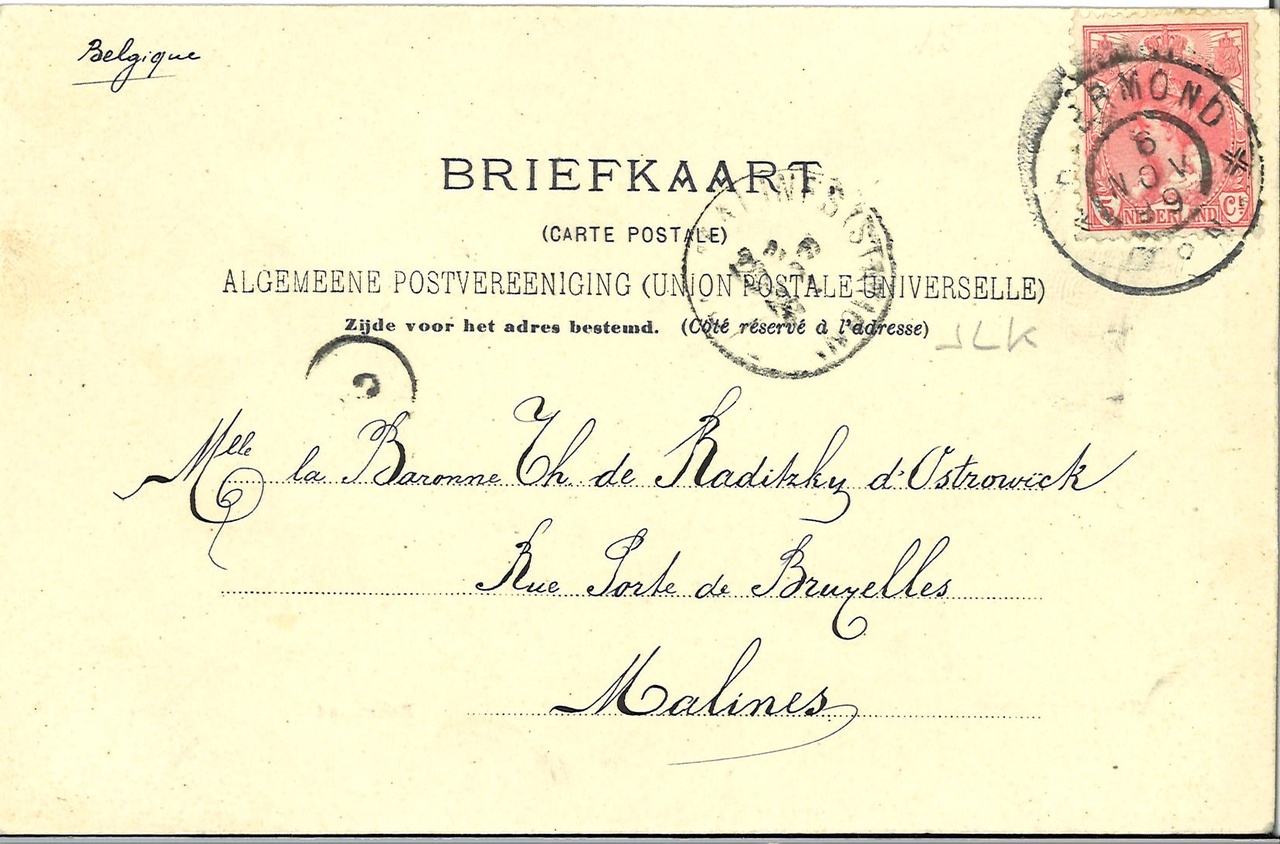 Belgique
BRIEFKAART
(CARTE POSTALE)
ALGEMEENE POSTVEREENIGING (UNION POSTALE UNIVERSELLE)
Zijde voor het adres bestemd. (Côté réservé à l'adresse)
5 NEDERLAND Ct
6
NOV
99
JLK
Mlle la Baronne Th de Raditzky d'Ostrowick
Rue Porte de Bruxelles
Malines